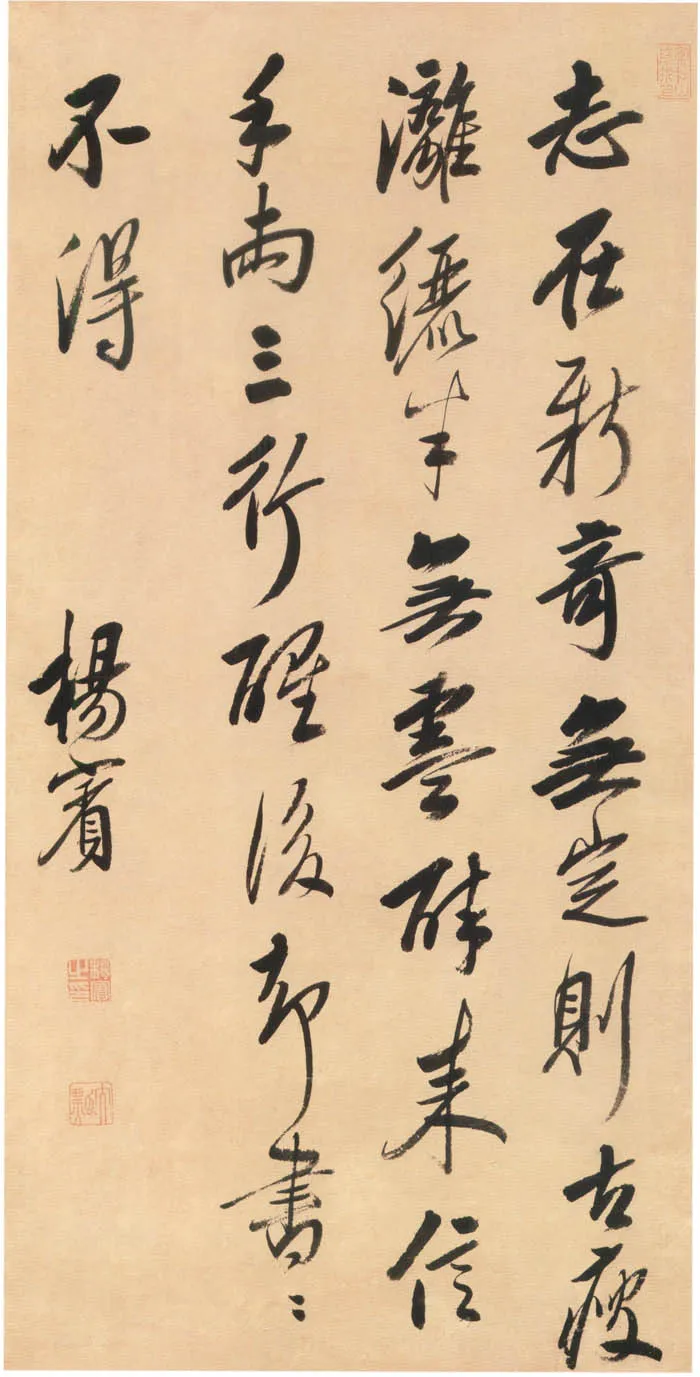 志在新奇無定則古瘦
灕纚半無墨醉來信
手兩三行醒後却書〻
不得
楊賓